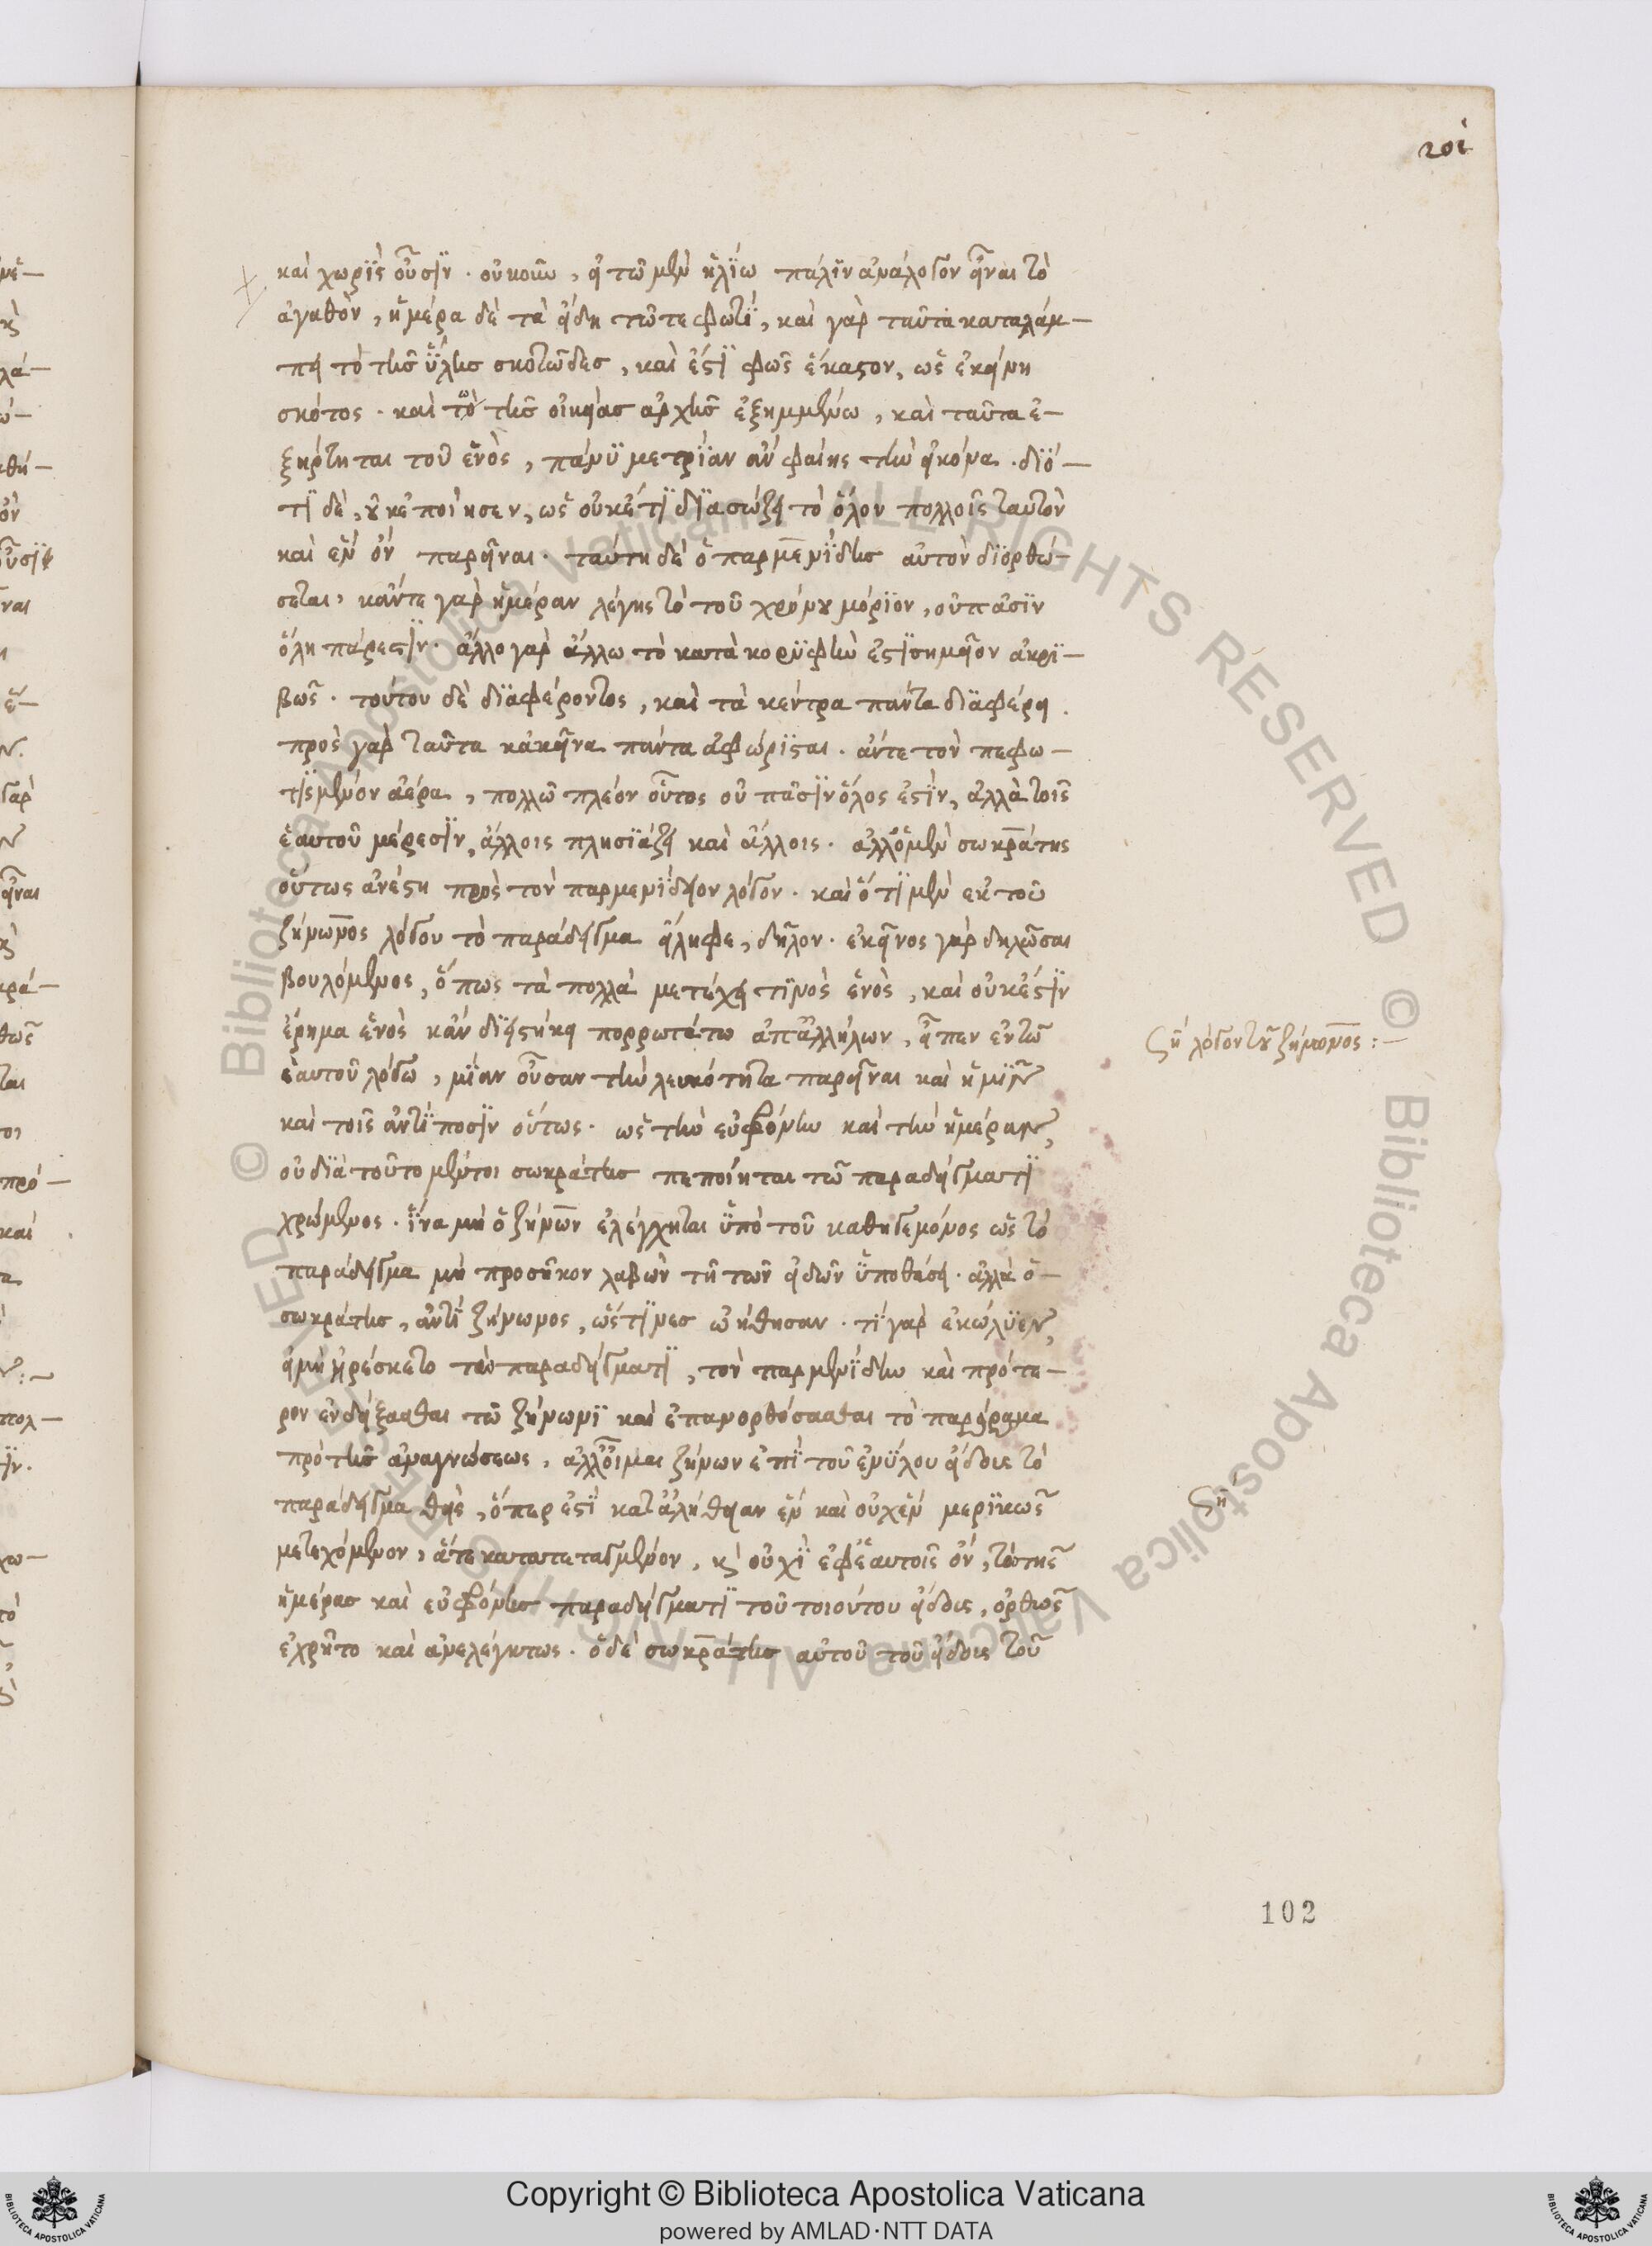 201
καὶ χωρὶς οὖσιν. οὐκοῦν, εἰ τῶ μὲν ἡλίω πάλιν ἀνάλογον εἶναι τὸ
ἀγαθὸν, ἡμέρα δὲ τὰ εἴδη τῶ τε φωτί, καὶ γὰρ ταῦτα καταλάμ-
πει τὸ τῆς ὕλης σκοτῶδες, καὶ ἐστὶ φῶς ἕκαστον, ὡς ἐκείνη
σκότος. καὶ τῶ τῆς οἰκείας ἀρχῆς ἐξημμένω, καὶ ταῦτα ἐ-
ξήρτηται τοῦ ἑνὸς, πάνυ μετρίαν ἂν φαίης τὴν εἰκόνα. διό-
τι δὲ, οὐκ ἐποίησεν, ὡς οὐκέτι διασώζει τὸ ὅλον πολλοῖς ταυτὸν
καὶ ἓν ὂν παρεῖναι. ταύτη δὲ ὁ παρμενίδης αὐτὸν διορθώ-
σεται, κἄν τε γὰρ ἡμέραν λέγης τὸ τοῦ χρόνου μόριον, οὐ πᾶσιν
ὅλη πάρεστιν. ἄλλο γὰρ ἄλλω τὸ κατὰ κορυφὴν ἐστὶ σημεῖον ἀκρι-
βῶς. τούτου δὲ διαφέροντος, καὶ τὰ κέντρα πάντα διαφέρει.
πρὸς γὰρ ταῦτα κἀκεῖνα πάντα ἀφώρισται. ἄν τε τὸν πεφω-
τισμένον ἀέρα, πολλῶ πλέον οὗτος οὐ πᾶσιν ὅλος ἐστὶν, ἀλλὰ τοῖς
ἑαυτοῦ μέρεσιν, ἄλλοις πλησιάζει καὶ ἄλλοις. ἀλλ' ὁ μὲν σωκράτης
οὕτως ἀνέστη πρὸς τὸν παρμενίδειον λόγον. καὶ ὅτι μὲν ἐκ τοῦ
ζήνωνος λόγου τὸ παράδειγμα εἴληφε, δῆλον. ἐκεῖνος γὰρ δηλῶσαι
βουλόμενος, ὅπως τὰ πολλὰ μετέχει τινὸς ἑνὸς, καὶ οὐκ ἔστιν
ἔρημα ἑνὸς κἂν διεστήκη πορρωτάτω ἀπ' ἀλλήλων, εἶπεν ἐν τῶ
ἑαυτοῦ λόγω, μίαν οὖσαν τὴν λευκότητα παρεῖναι καὶ ἡμῖν
καὶ τοῖς ἀντίποσιν οὕτως. ὡς τὴν εὐφρόνην καὶ τὴν ἡμέραν,
οὐ διὰ τοῦτο μέντοι σωκράτης πεποίηται τῶ παραδείγματι
χρώμενος. ἵνα μὴ ὁ ζήνων ἐλέγχηται ὑπὸ τοῦ καθηγεμόνος ὡς τὸ
παράδειγμα μὴ προσῆκον λαβὼν τῆ τῶν εἰδῶν ὑποθέσει. ἀλλὰ ὁ
σωκράτης, ἀντὶ ζήνωνος, ὥς τινες ὠήθησαν. τί γὰρ ἐκώλυεν,
εἰ μὴ ἠρέσκετο τῶ παραδείγματι, τὸν παρμενίδην καὶ πρότε-
ρον ἐνδείξασθαι τῶ ζήνωνι καὶ ἐπανορθόσασθαι τὸ παρόραμα
πρὸ τῆς ἀναγνώσεως, ἀλλ' οἶμαι ζήνων ἐπὶ τοῦ ἐνύλου εἴδους τὸ
παράδειγμα θεὶς, ὅπερ ἐστὶ κατ' ἀλήθειαν ἓν καὶ οὐχ ἓν μερικῶς
μετεχόμενον, ἅτε κατατεταγμένον, κ οὐχὶ ἐφ' ἑαυτοῖς ὂν, τῶ τῆς
ἡμέρας καὶ εὐφρόνης παραδείγματι τοῦ τοιούτου εἴδους, ὀρθῶς
ἐχρῆτο καὶ ἀνελέγκτως. ὁ δὲ σωκράτης αὐτοῦ τοῦ εἴδους τοῦ
ση λόγον τοῦ ζήνωνος:-
ση
102
Copyright © Biblioteca Apostolica Vaticana
powered by AMLAD·NTT DATA